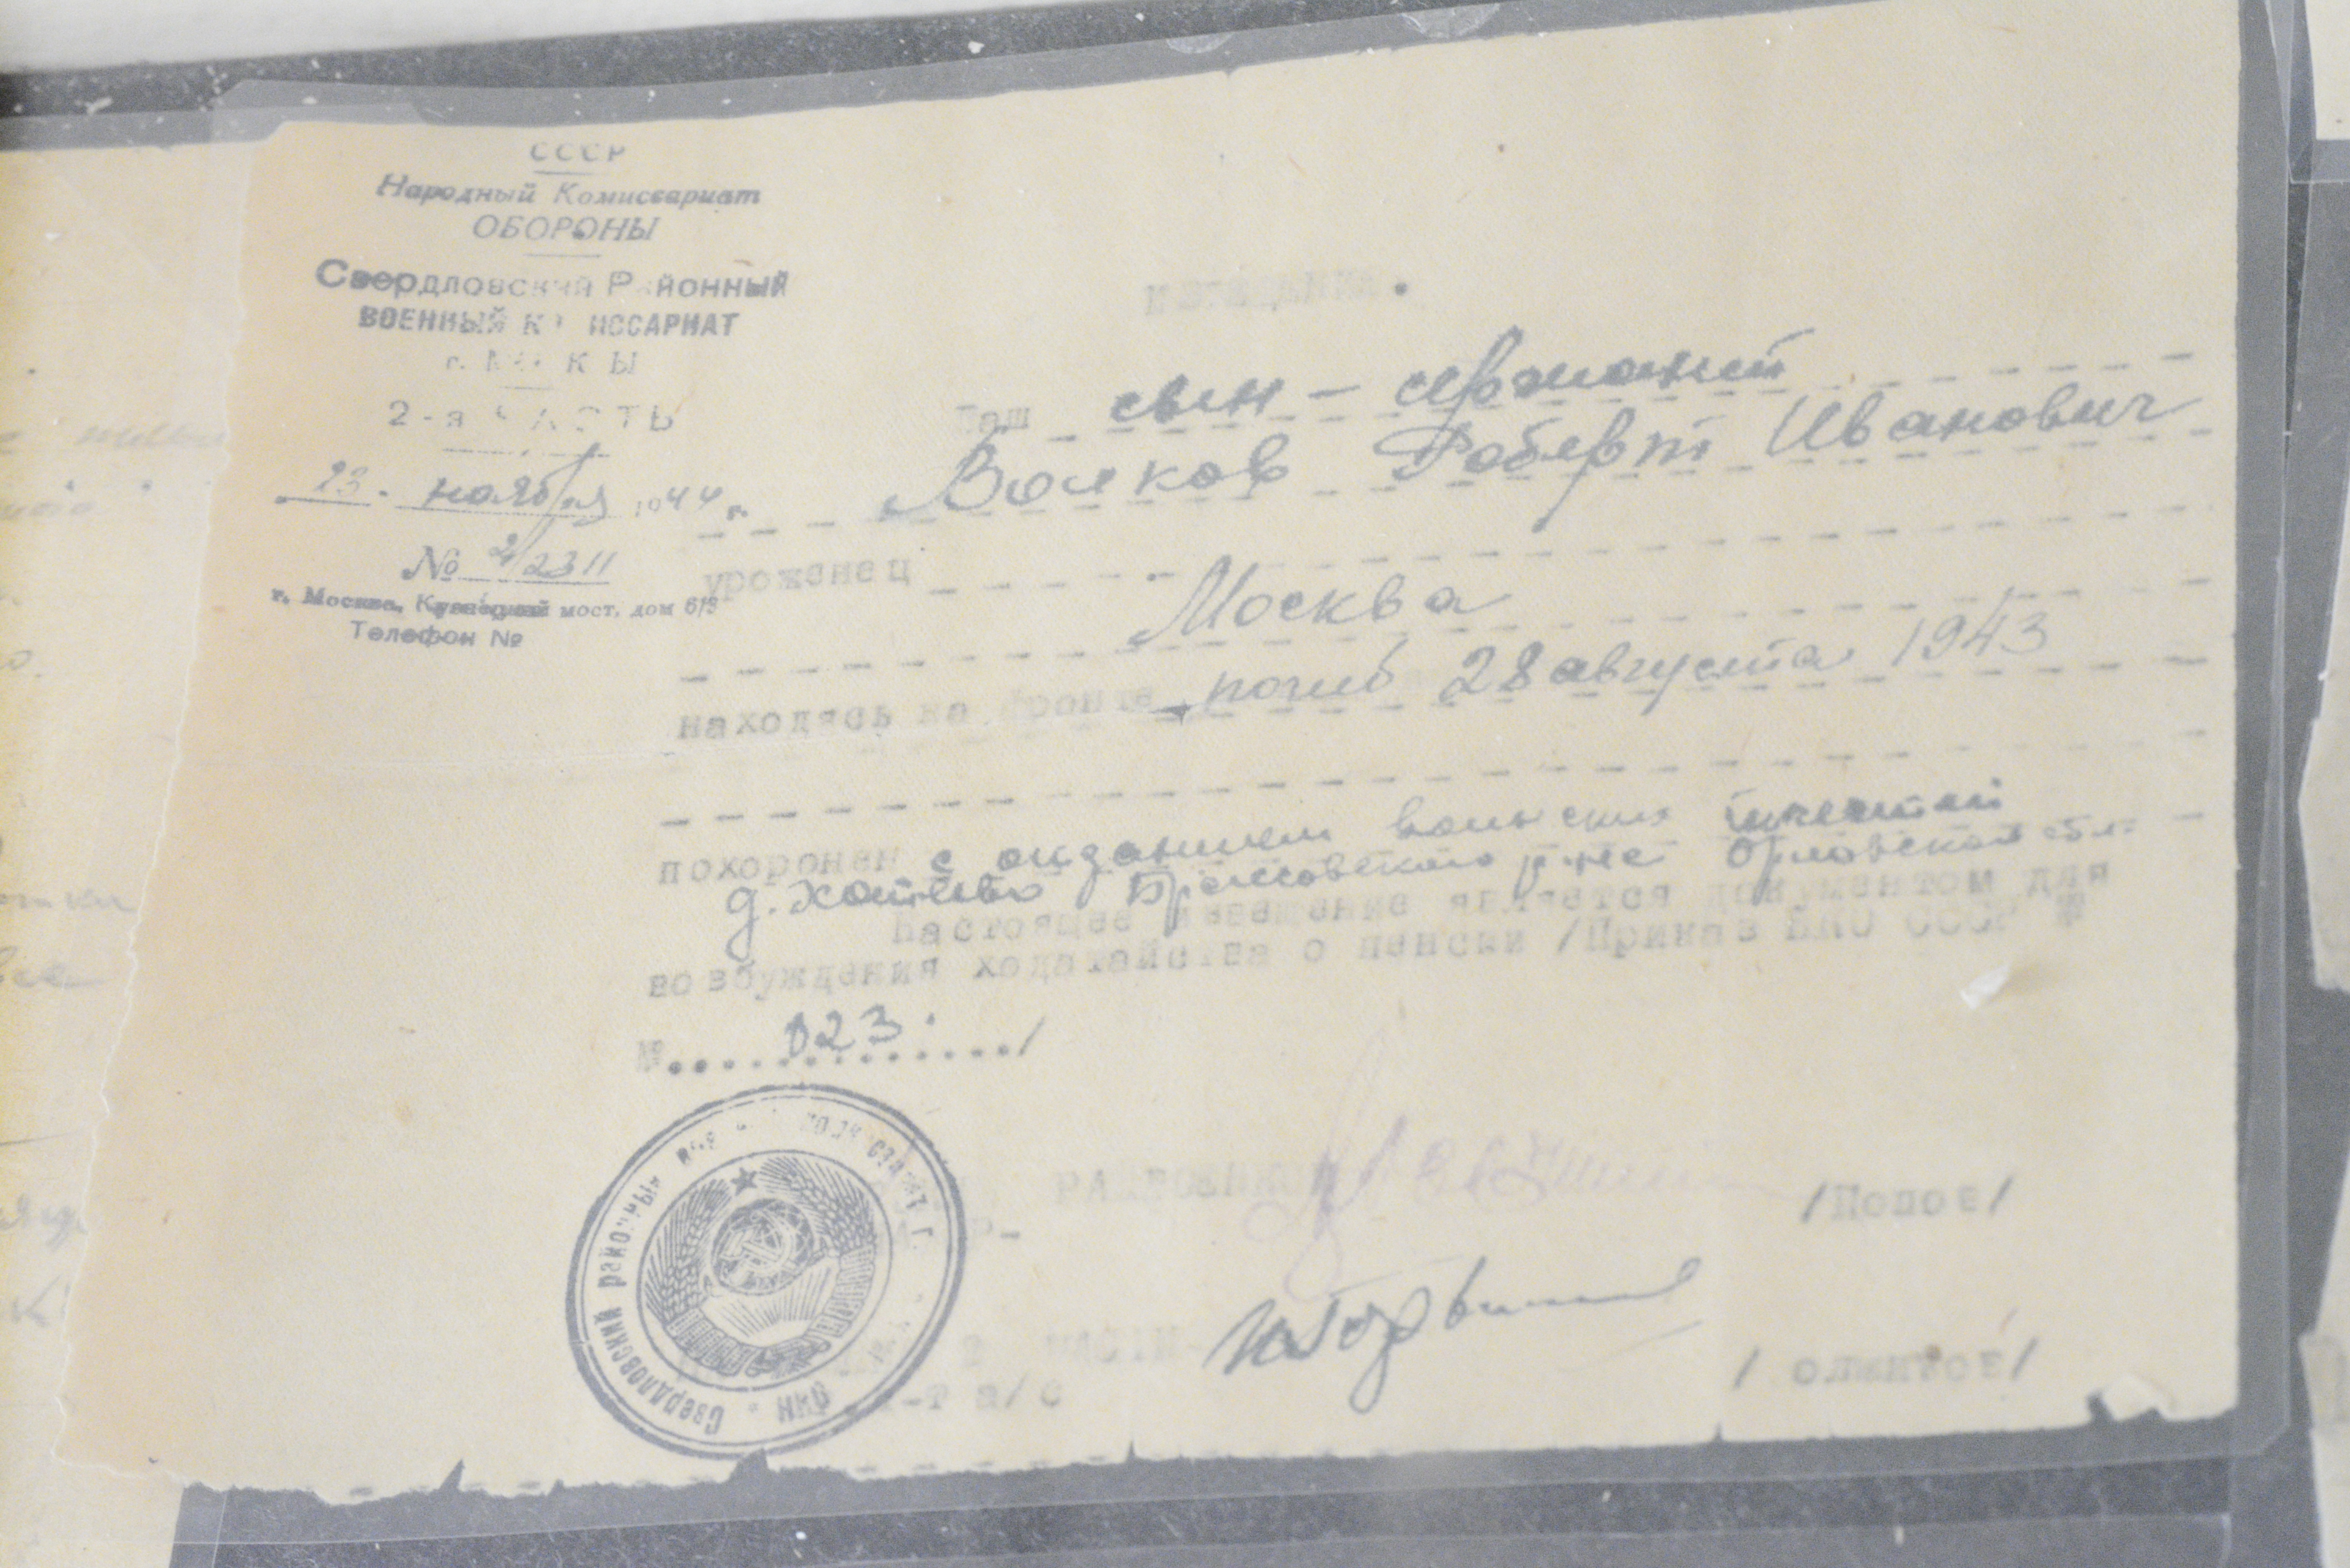 СССР
Народный Комиссариат
ОБОРОНЫ
Свердловский Районный
ВОЕННЫЙ КОМИССАРИАТ
2-я ЧАСТЬ
23. ноября 1944 г.
№ 2/2311
г. Москва, Кузнецкий мост, дом 6/3
Телефон №
ИЗВЕЩЕНИЕ.
Ваш сын - сержант
Волков Роберт Иванович
уроженец
Москва
находясь на фронте погиб 28 августа 1943
похоронен с отданием воинских почестей
д. Хотеево Брасовского р-на Орловской обл.
Настоящее извещение является документом для
возбуждения ходатайства о пенсии /Приказ НКО СССР
№ 023. /
РАЙВОЕНКОМ
/Попов/
ЧАСТИ
/
Свердловский районный НКО